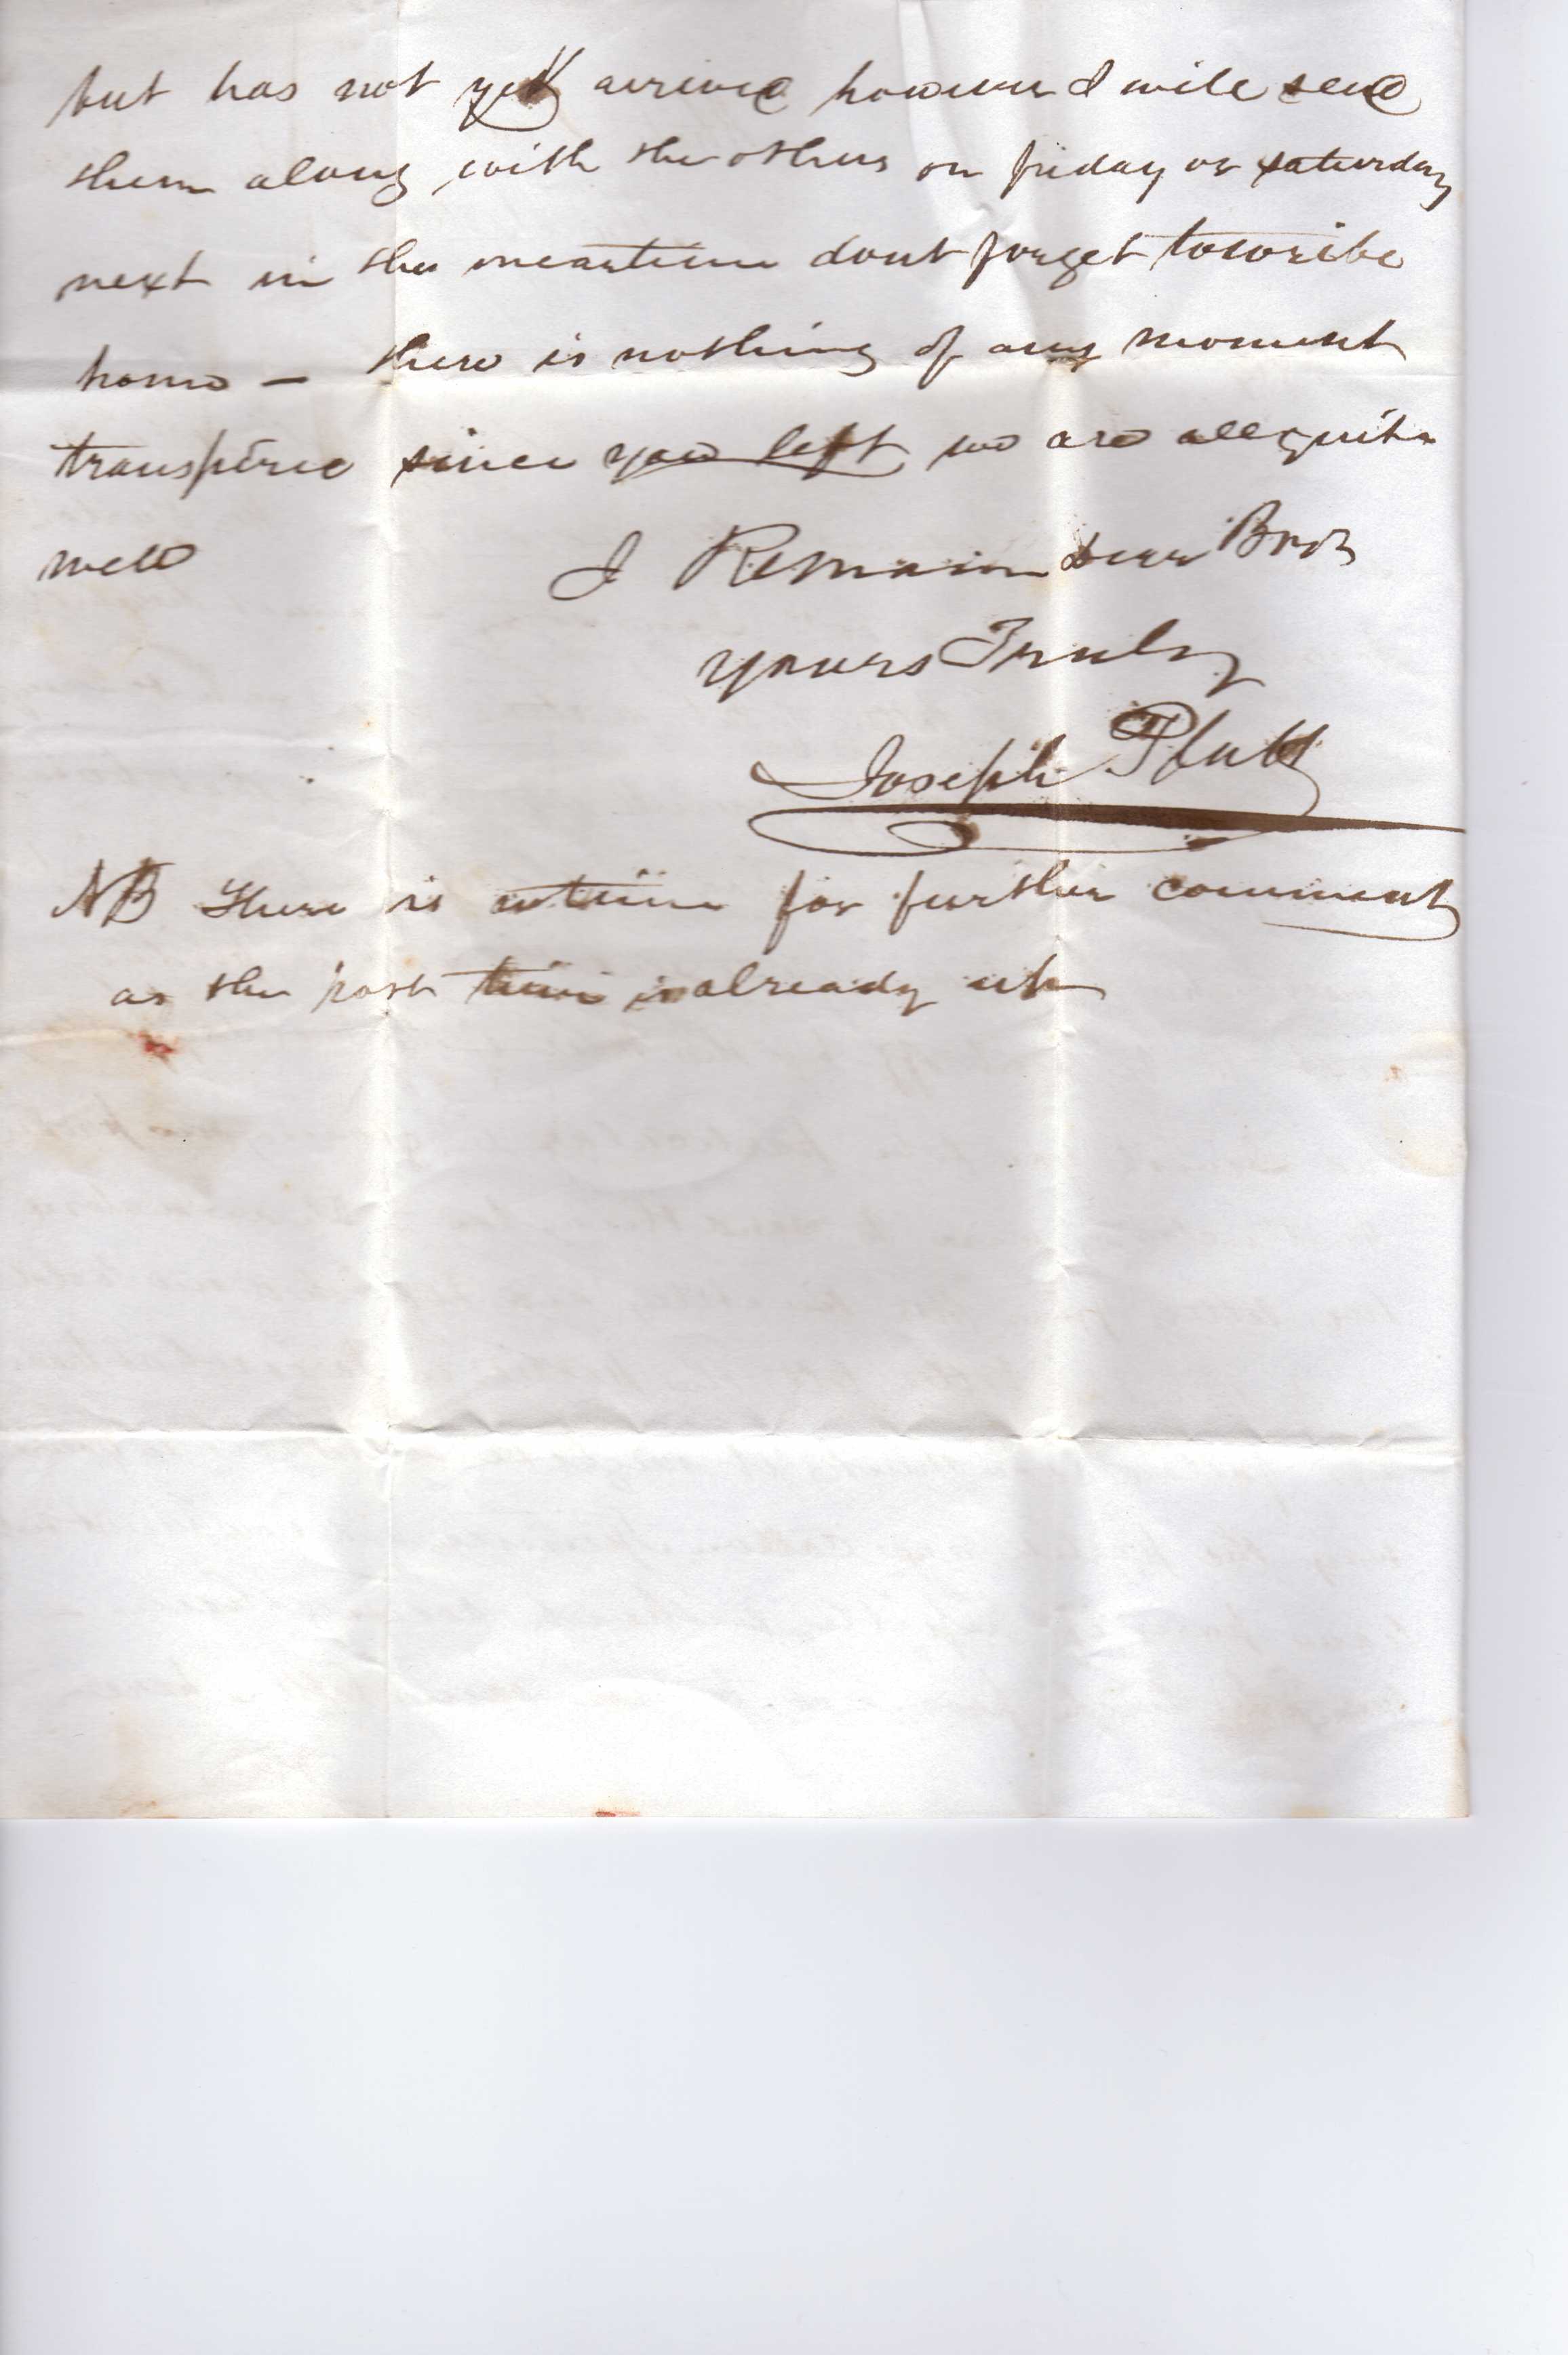 but has not yet arrived however I will send
them along with the others on friday or saturday
next in the meantime dont forget to write
home – there is nothing of any moment
transpired since you left we are all quite
well I Remain Dear Bro
yours Truly
Joseph
NB There is time for further comment
as the post time is already up